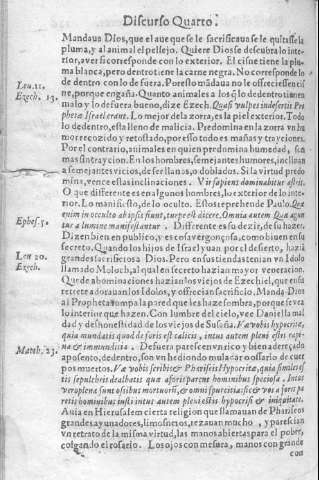 Discurso Quarto.
Mandaua Dios, que el aue que se le sacrificaua se le quitasse la
pluma, y al animal el pellejo. Quiere Dios se descubra lo inte-
rior, a ver si corresponde con lo exterior. El cisne tiene la plu
ma blanca, pero dentro tiene la carne negra. No corresponde lo
de dentro con lo de fuera. Por esso mādaua no le ofreciessen cis
ne, porque engaña. Quanto animales a los q̄ lo de dentro tienen
malo y lo de fuera bueno, dize Ezech. Quasi vulpes in desertis Pro
phetæ Israel erant. Lo mejor de la zorra, es la piel exterior. Todo
lo de dentro, esta lleno de malicia. Predomina en la zorra vn hu
mor rezozido y retostado, por esso todo es mañas y trayciones.
Por el contrario, animales en quien predomina humedad, son
mas sin traycion. En los hombres, semejantes humores, inclinan
a semejantes vicios, de ser llanos, o doblados. Si la virtud predo
mina, vence essas inclinaciones. Vir sapiens dominabitur astris.
O que differente es en algunos hombres, lo exterior de lo inte-
rior. Lo manifiesto, de lo oculto. Esto reprehende Paulo. Quæ
enim in occulto ab ipsis fiunt, turpe est dicere. Omnia autem Quæ arguun
tur a lumine manifestantur. Differente es su dezir, de su hazer.
Dizen bien en publico, y es cosa vergonçosa, como biuen en su
secreto. Quando los hijos de Israel yuan por el desierto, hazia
grandes sacrificios a Dios. Pero en sus tiendas tenian vn Idolo
llamado Moloch, al qual en secreto hazian mayor veneracion.
Que de abominaciones hazian los viejos de Ezechiel, que en su
retrete adorauan los Idolos, y offrecian sacrificio. Manda Dios
al Propheta rompa la pared que les haze sombra, porque se vea
lo interior que hazen. Con lumbre del cielo, vee Daniel la mal
dad y deshonestidad de los viejos de Susaña. Væ vobis hypocritæ,
quia mundatis quod de foris est calicis, intus autem pleni estis rapi-
na & immunditia. De fuera parecse vn rico y bien adereçado
aposento, de dentro, son vn hediondo muladar o ossario de cuer
pos muertos. Væ vobis scribæ & Pharisæi Hypocritæ, quia similes es
tis sepulchris dealbatis quæ aforis parent hominibus speciosa. Intus
vero plena sunt ossibus mortuorū, & omni spurcitia: sic & vos a foris pa
retis hominibus iusti intus autem pleni estis hypocrisi & iniquitate.
Auia en Hierusalem cierta religion que llamauan de Phariseos
grandes ayunadores, limosneros, rezauan mucho, y parecian
vn retrato de la misma virtud, las manos abiertas para el pobre,
colgando el rosario. Los ojos con mesura, manos con grande
con
Leu. 11.
Ezech. 13.
Ephes. 5.
Leu 20.
Ezech.
Matth. 23.